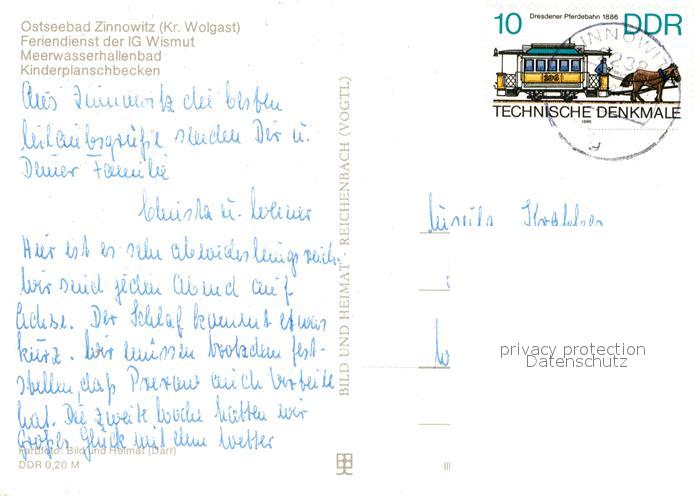 Ostseebad Zinnowitz (Kr. Wolgast)
Feriendienst der IG Wismut
Meerwasserhallenbad
Kinderplanschbecken
Aus Zinnowitz die besten
Urlaubsgrüße senden Dir u.
Deiner Familie
Christa u. Werner
Hier ist es sehr abwechslungsreich.
Wir sind jeden Abend auf
Achse. Der Schlaf kommt etwas
kurz. Wir müssen trotzdem fest-
stellen, daß Prerow auch Vorteile
hat. Die zweite Woche hatten wir
großes Glück mit dem Wetter
Farbfoto: Bild und Heimat (Darr)
DDR 0,20 M
BILD UND HEIMAT REICHENBACH (VOGTL)
Dresdener Pferdebahn 1886
10 DDR
TECHNISCHE DENKMALE
1986
ZINNOWITZ
privacy protection
Datenschutz